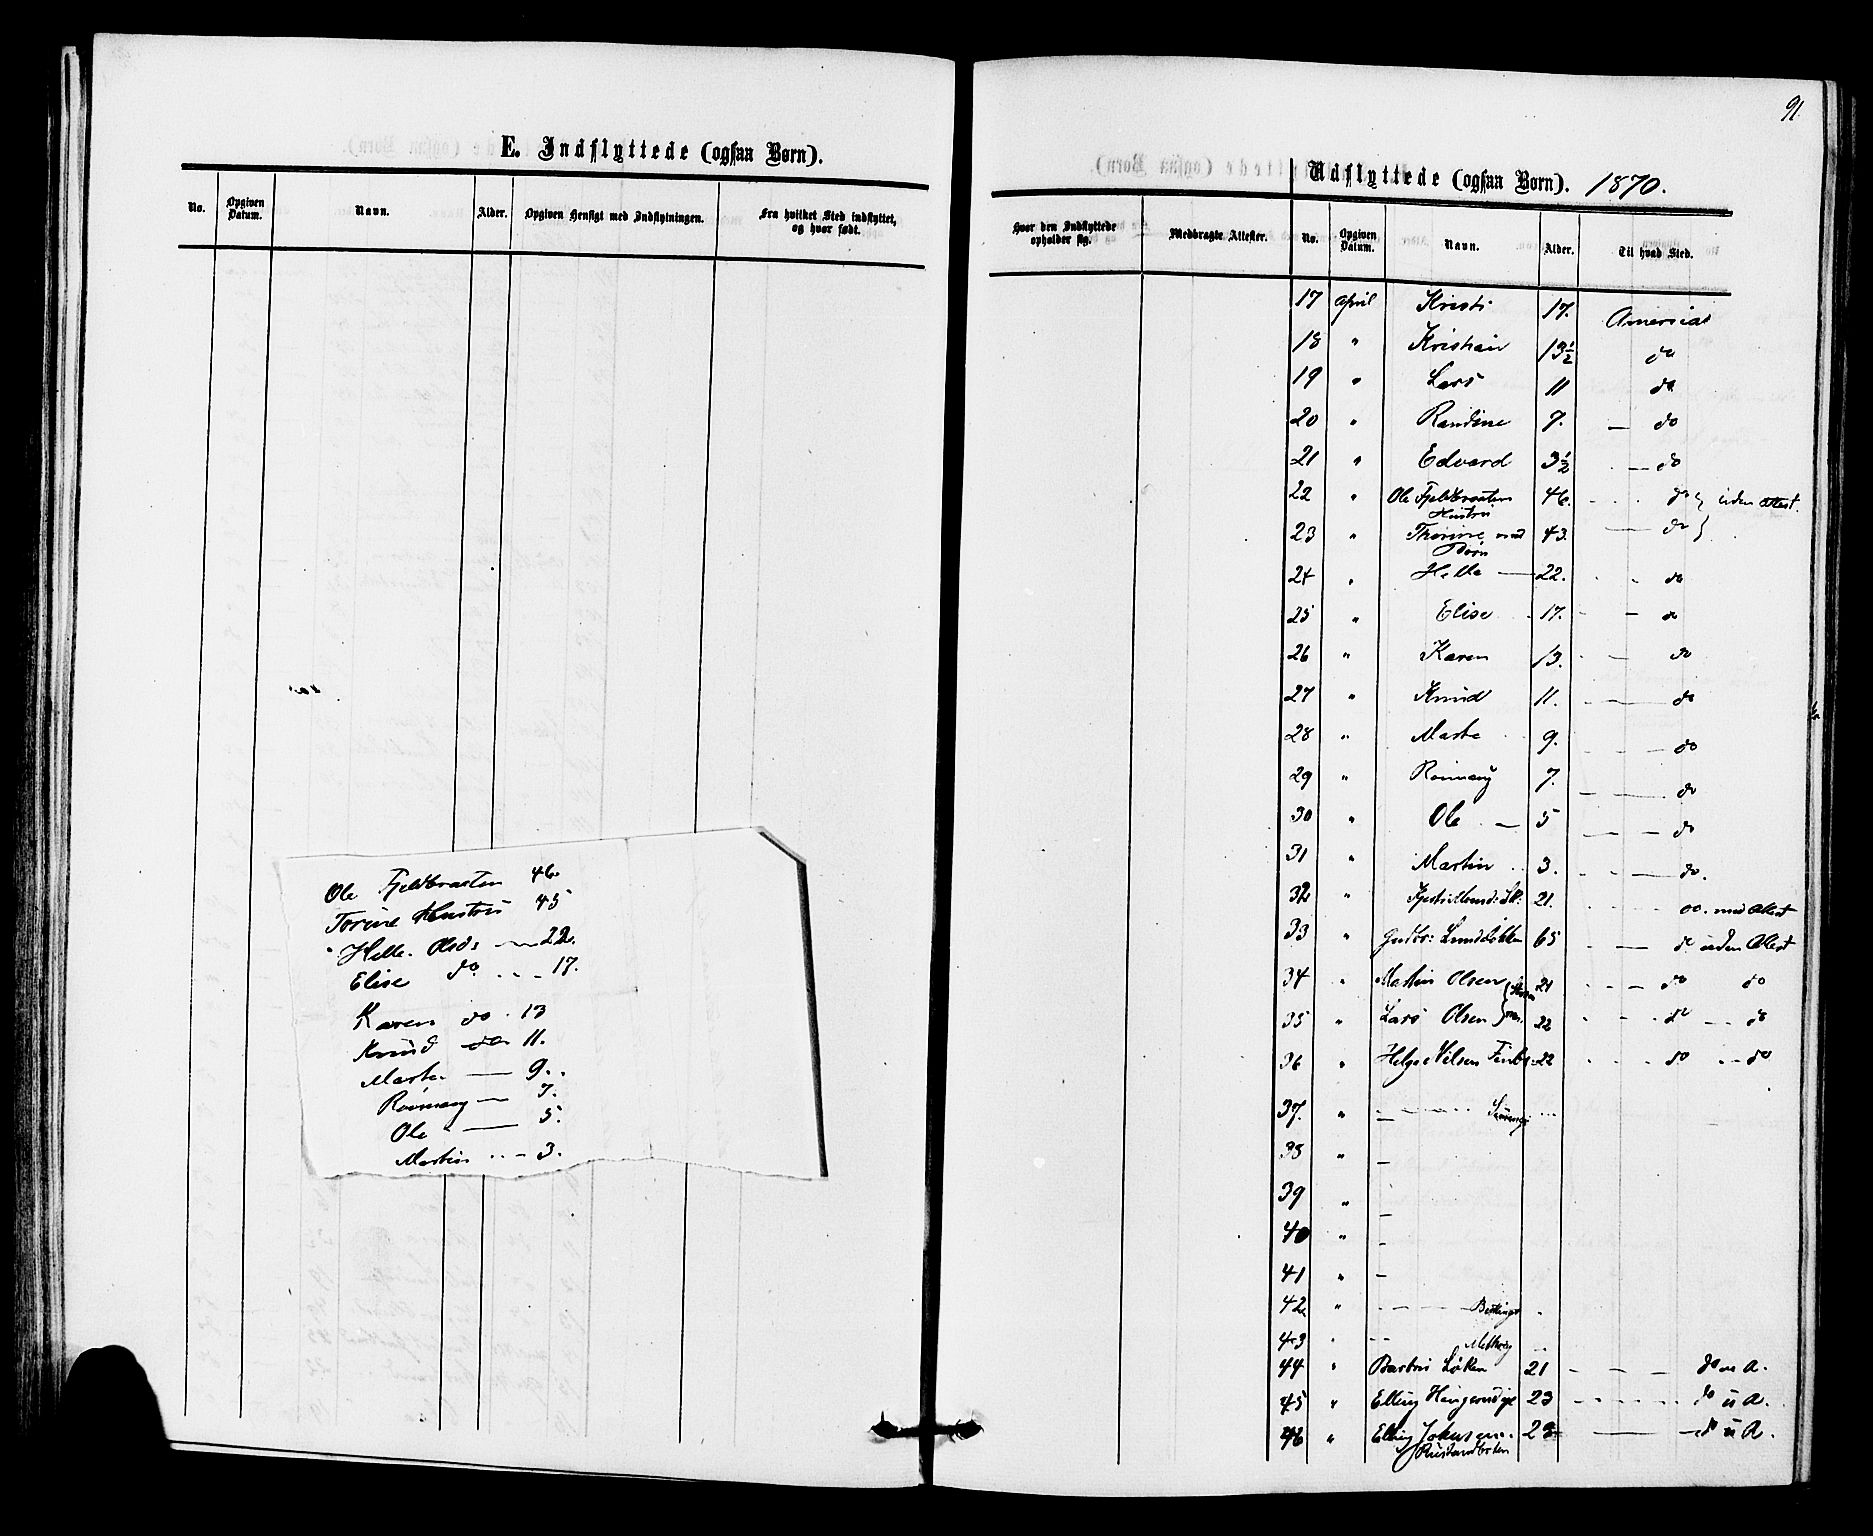 E. Indflyttede (ogsaa Børn).
No. Opgiven Datum. Navn. Alder. Opgiven Hensigt med Indflytningen. Fra hvilket Sted indflyttet, og hvor født.
Ole Fjeldbraaten 46
Torine Hustru 45
Helle Olsd: — 22.
Elise do. - - - 17.
Karen do - 13
Knud do 11.
Marte — 9.
Rønnaug — 7.
Ole — 5.
Martin - - - 3.
91
Udflyttede (ogsaa Børn). 1870.
Hvor den Indflyttede opholder sig. Medbragte Attester. No. Opgiven Datum. Navn. Alder. Til hvad Sted.
17 April Kristi 17. America
18 " Kristian 13½ do
19 " Lars 11 do
20 " Randine 7. — do
21 " Edvard 3½ — do
22 " Ole Fjeldbraaten 46. do } uden Attest.
Hustru
23 " Thorine med 43. — do }
Børn
24 " Helle — 22. do
25 " Elise 17. — do
26 " Karen 13. — do
27 " Knud 11. — do
28 " Marte 9. — do
29 " Rønnaug 7. — do
30 " Ole — 5 — do
31 " Martin 3. — do.
32 " 21. do. med Attest
33 " Gudbr: Lunddokken 65 — do uden Attest
34 " Martin Olsen 21 — do do
35 " Lars Olsen 22 do — do
36 " Helge Nilsen 22 do - - do
37. " —
38 " —
39 " —
40 " —
41 " —
42 " —
43 " - -
44 " Løken 21 — do m A.
45 " Elling 23 do u A.
46 " Elling 28 — do u A.